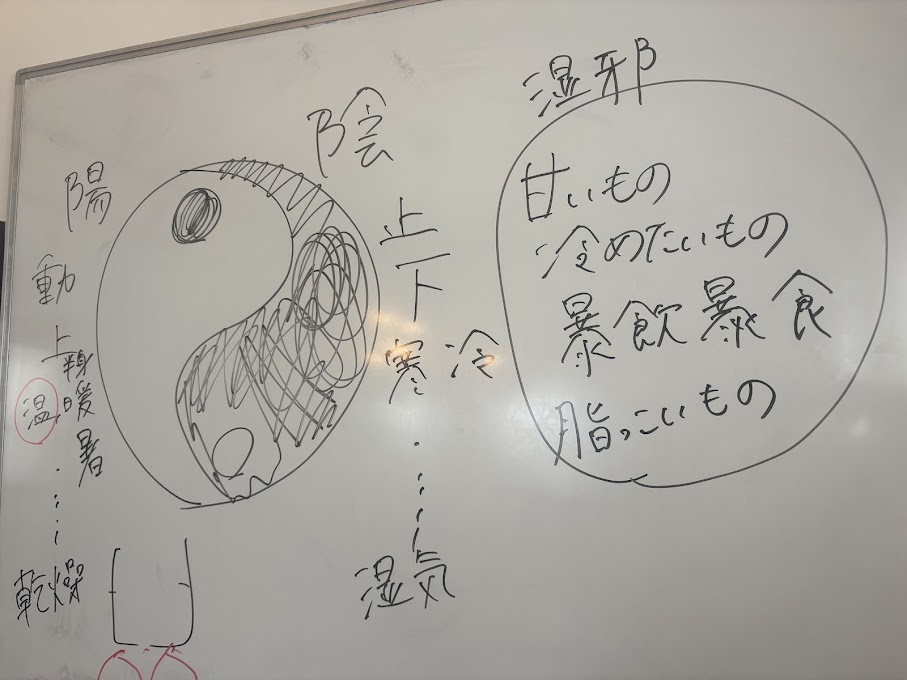 陽
動
上
暖
温
暑
乾燥
陰
止
下
寒 冷
湿気
湿邪
甘いもの
冷めたいもの
暴飲暴食
脂っこいもの